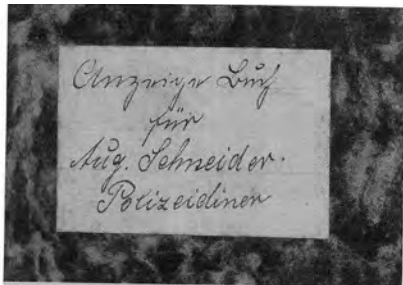 Anzeige Buch
für
Aug. Schneider.
Polizeidiner